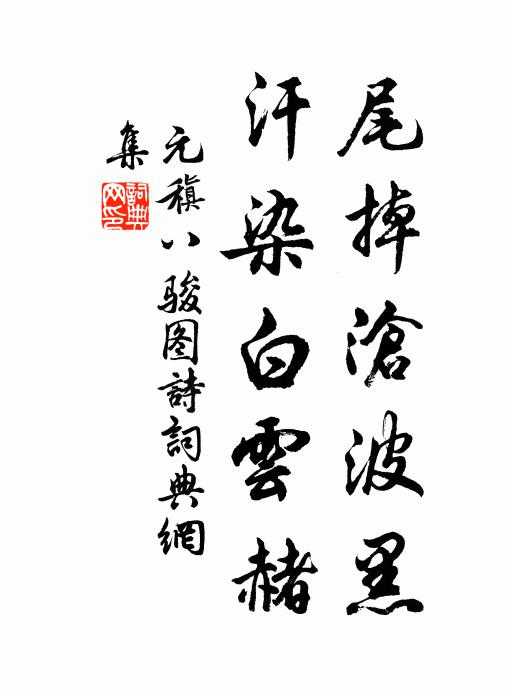 尾掉滄波黑
汗染白雲赭
元稹八駿图詩詞典網
集
詞典网印